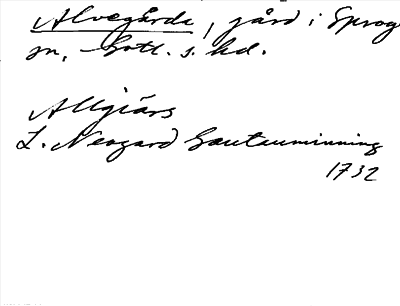 Alvegårde, gård i Sprog
sn, Gotl. s. hd.
Allgiärs
L. Neogard Gautauminning
1732